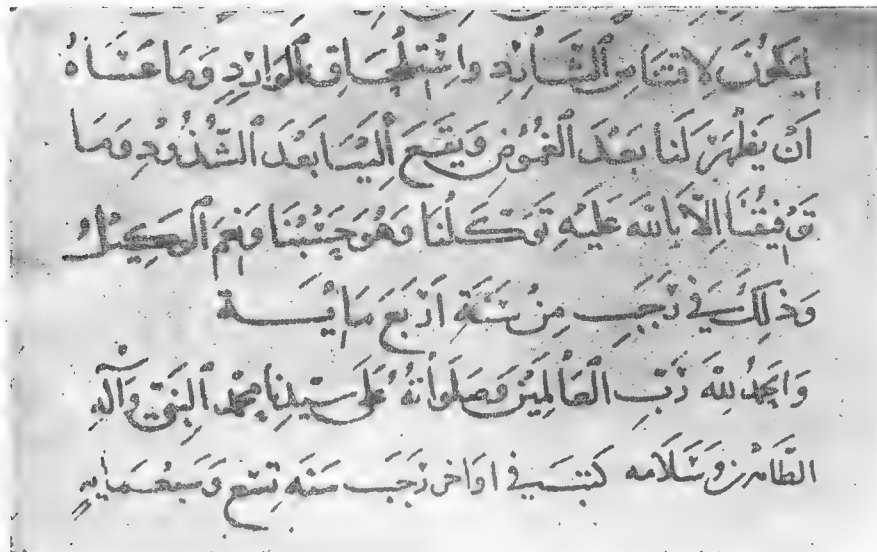 ليكون لاقتناص الشارد واستلحاق الوارد وما عساه
أن يظهر لنا بعد الغموض ويقع إلينا بعد الشذوذ وما
توفيقنا إلا بالله عليه توكلنا وهو حسبنا ونعم الوكيل
وذلك في رجب من سنة أربع مائة
والحمد لله رب العالمين وصلواته على سيدنا محمد النبي وآله
الطاهرين وسلامه كتبت في أواخر رجب سنة تسع وسبعمايه